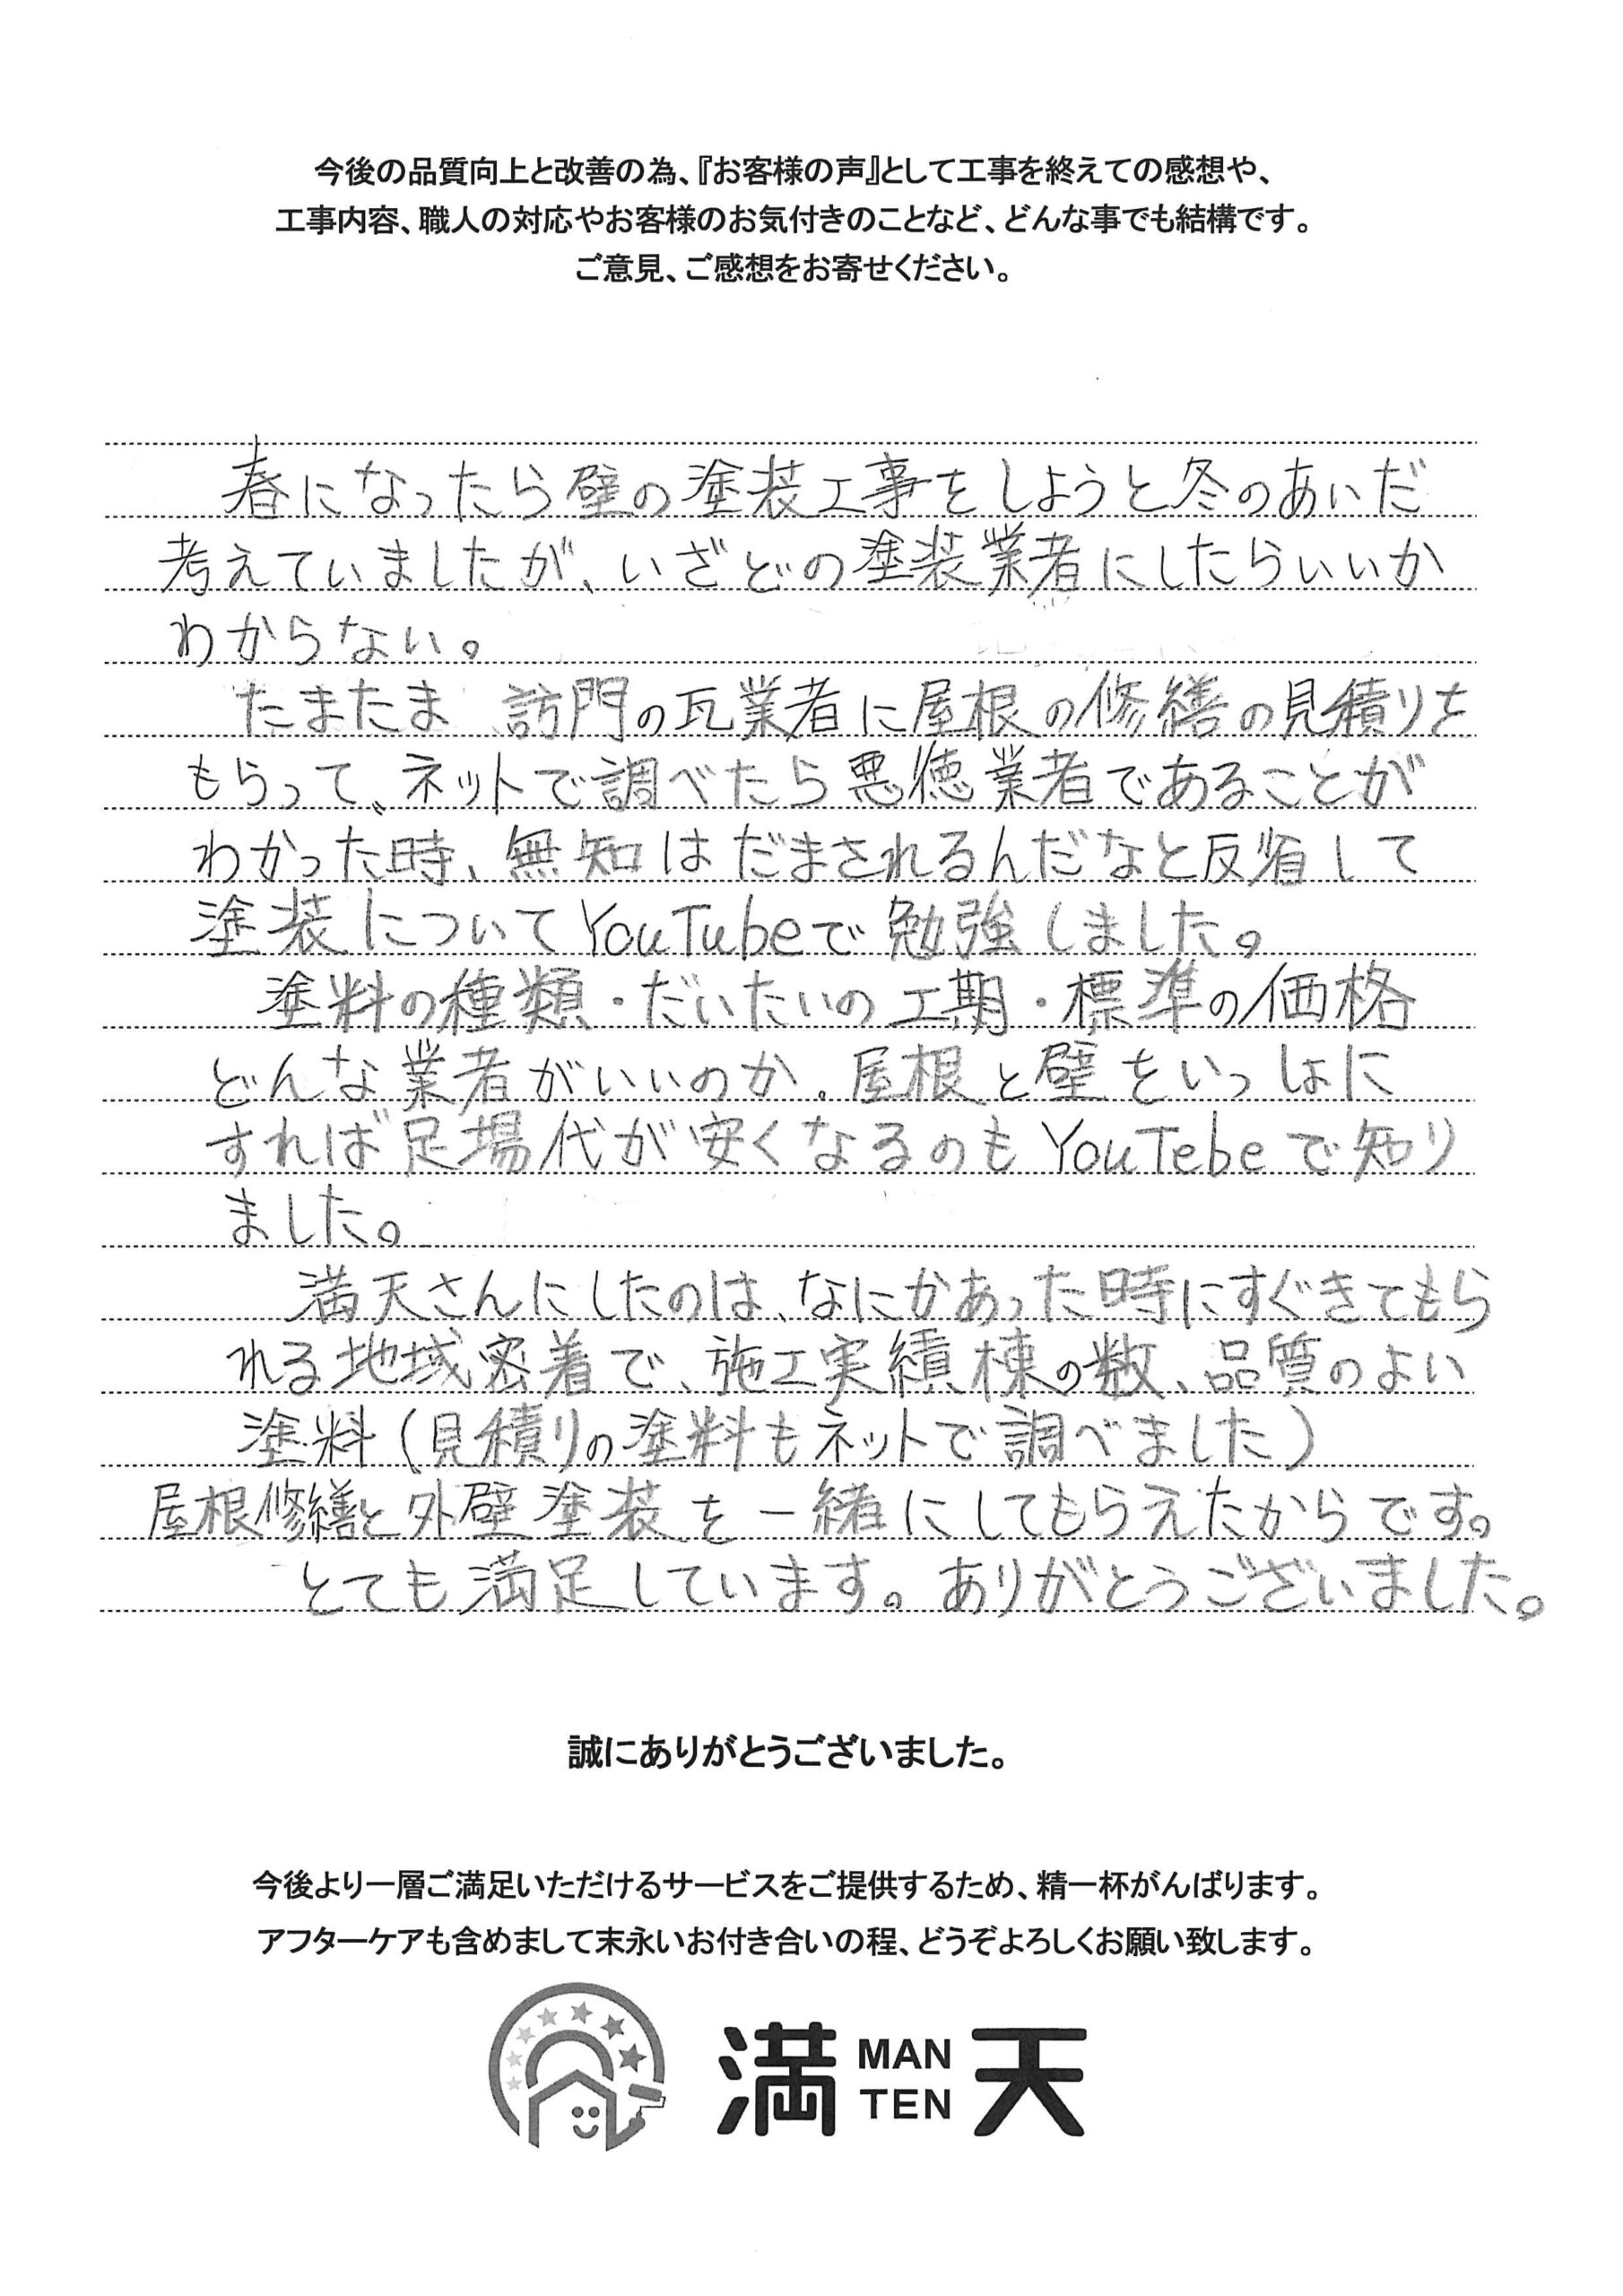 今後の品質向上と改善の為、『お客様の声』として工事を終えての感想や、
工事内容、職人の対応やお客様のお気付きのことなど、どんな事でも結構です。
ご意見、ご感想をお寄せください。
春になったら壁の塗装工事をしようと冬のあいだ
考えていましたが、いざどの塗装業者にしたらいいか
わからない。
たまたま 訪門の瓦業者に屋根の修繕の見積りを
もらって、ネットで調べたら悪徳業者であることが
わかった時、無知はだまされるんだなと反省して
塗装についてYouTubeで勉強しました。
塗料の種類・だいたいの工期・標準の価格
どんな業者がいいのか、屋根と壁をいっしょに
すれば足場代が安くなるのもYouTebeで知り
ました。
満天さんにしたのは、なにかあった時にすぐきてもら
れる地域密着で、施工実績棟の数、品質のよい
塗料(見積りの塗料もネットで調べました)
屋根修繕と外壁塗装を一緒にしてもらえたからです。
とても満足しています。ありがとうございました。
誠にありがとうございました。
今後より一層ご満足いただけるサービスをご提供するため、精一杯がんばります。
アフターケアも含めまして末永いお付き合いの程、どうぞよろしくお願い致します。
満 MAN TEN 天